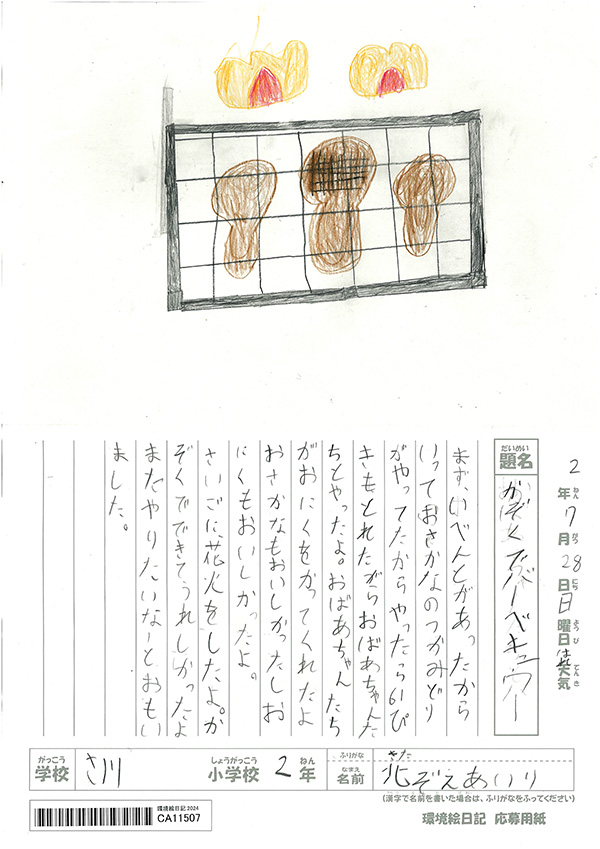 2年7月28日日曜日
だいめい
題名
かぞくでバーベキュウー
ねん
がつ
にち
ようび
てんき
天気
まず、いべんとがあったから
いっておさかなのつかみどり
がやってたからやったら61ぴ
きもとれたからおばあちゃんた
ちとやったよ。おばあちゃんたち
がおにくをかってくれたよ
おさかなもおいしかったしお
にくもおいしかったよ。
さいごに、花火をしたよ。か
ぞくでできてうれしかったよ
またやりたいなーとおもい
ました。
がっこう
学校
しょうがっこう
小学校 2年
ねん
ふりがな
なまえ
名前
きた
北ぞえあいり
(漢字で名前を書いた場合は、ふりがなをふってください)
環境絵日記2024
CA11507
環境絵日記 応募用紙